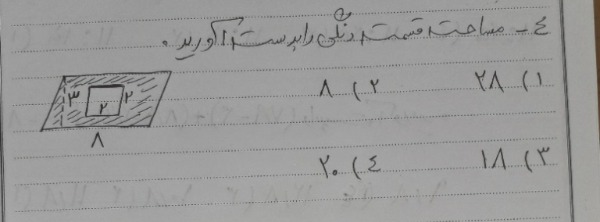 ٤- مساحت قسمت رنگی را بدست آورید.
۱) ۲۸ ۲) ۸
۳ ۲ ۲
۸
۳) ۱۸ ٤) ۲۰